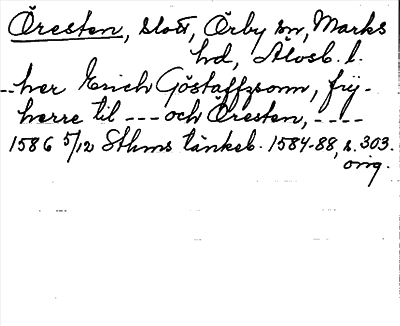 Öresten, slott, Örby sn, Marks
hd, Älvsb. l.
--her Erich Göstaffzsonn, frij-
herre til --- och Öresten, ----
1586 5/12 Sthms tänkeb. 1584-88, s. 303.
orig.